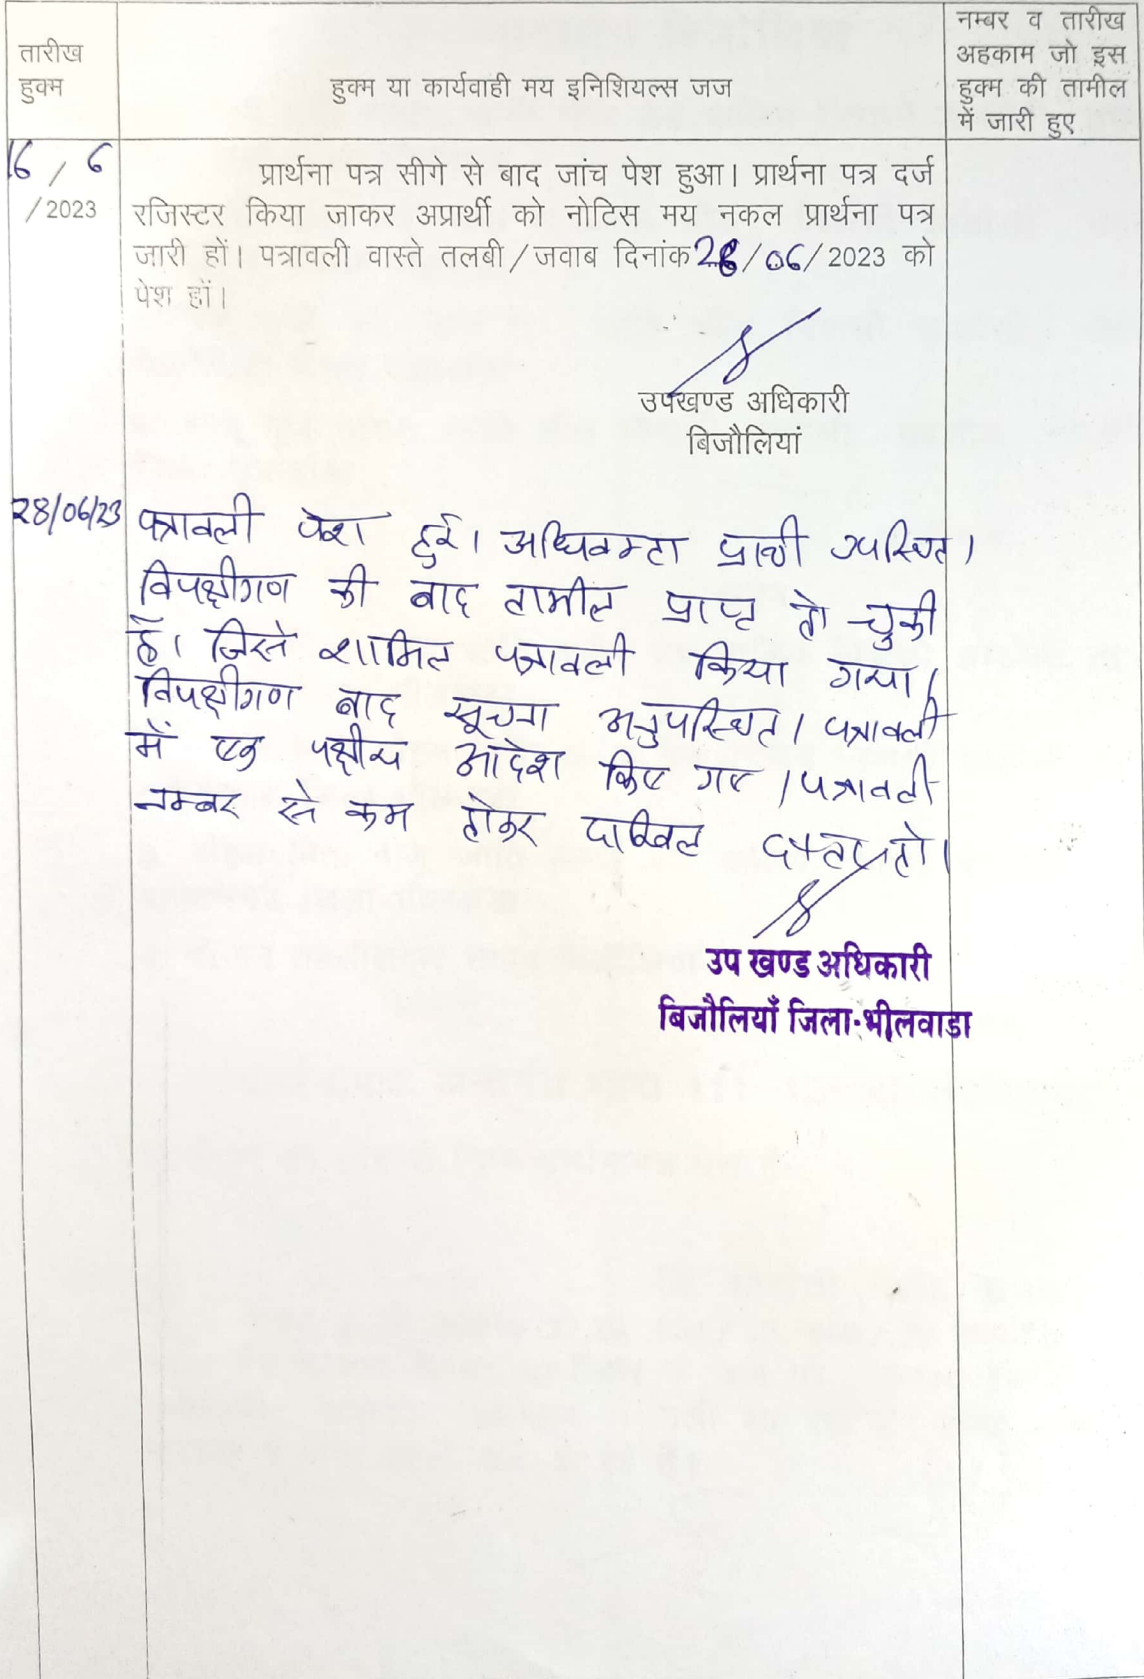 तारीख
हुक्म
हुक्म या कार्यवाही मय इनिशियल्स जज
नम्बर व तारीख
अहकाम जो इस
हुक्म की तामील
में जारी हुए
16 / 6
/ 2023
प्रार्थना पत्र सीगे से बाद जांच पेश हुआ। प्रार्थना पत्र दर्ज
रजिस्टर किया जाकर अप्रार्थी को नोटिस मय नकल प्रार्थना पत्र
जारी हों। पत्रावली वास्ते तलबी/जवाब दिनांक 28/06/2023 को
पेश हों।
उपखण्ड अधिकारी
बिजौलियां
28/06/23
पत्रावली पेश हुई। अधिवक्ता प्रार्थी उपस्थित।
विपक्षीगण की बाद तामील प्राप्त हो चुकी
है। जिसे शामिल पत्रावली किया गया।
विपक्षीगण बाद सूचना अनुपस्थित। पत्रावली
में एक पक्षीय आदेश किए गए। पत्रावली
नम्बर से कम होकर दाखिल दफ्तर हो।
उप खण्ड अधिकारी
बिजौलियाँ जिला-भीलवाडा